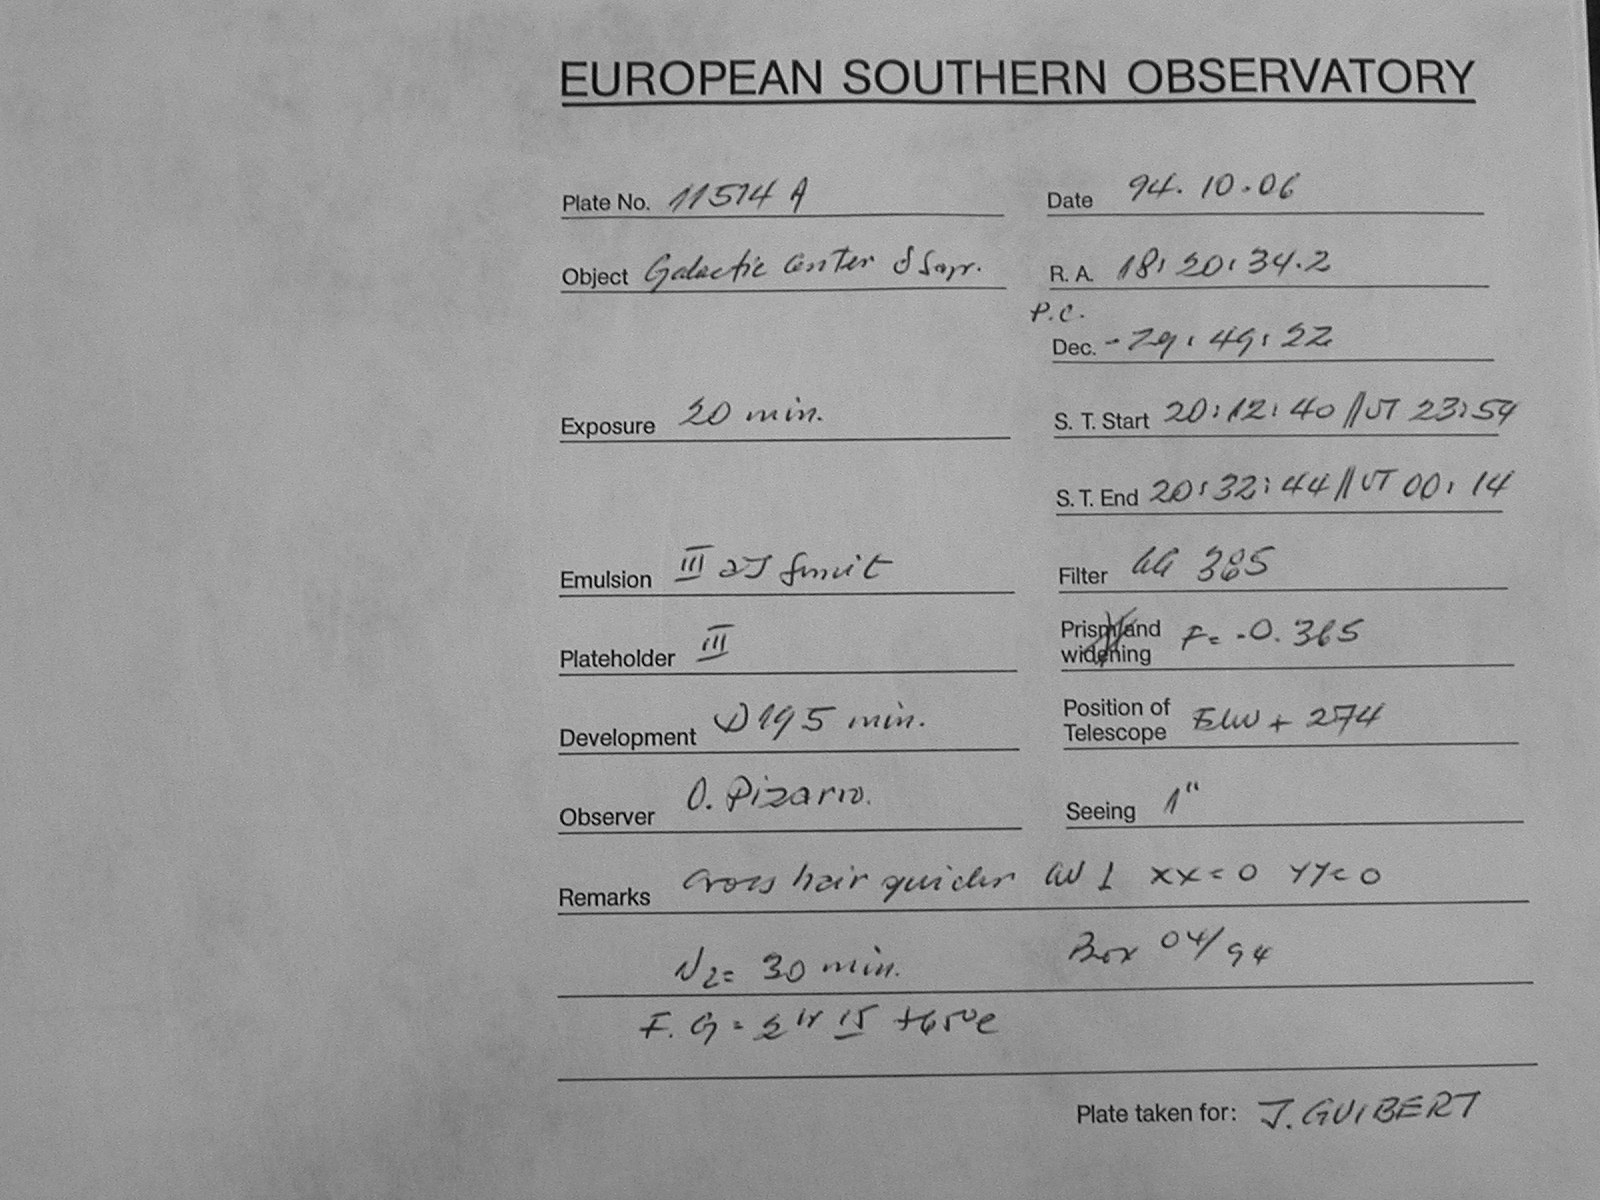 EUROPEAN SOUTHERN OBSERVATORY
Plate No. 11514 A
Date 94.10.06
Object Galactic Center
R.A. 18:20:34.2
P.C.
Dec. -29:49:22
Exposure 20 min.
S. T. Start 20:12:40 // UT 23:54
S. T. End 20:32:44 // UT 00:14
Emulsion III aJ
Filter GG 385
Plateholder III
Prism and widening F= -0.365
Development D19 5 min.
Position of Telescope EW + 274
Observer O. Pizarro.
Seeing 1"
Remarks Cross hair guider XX=0 YY=0
N2= 30 min. Box 04/94
F. G =
Plate taken for: J. GUIBERT